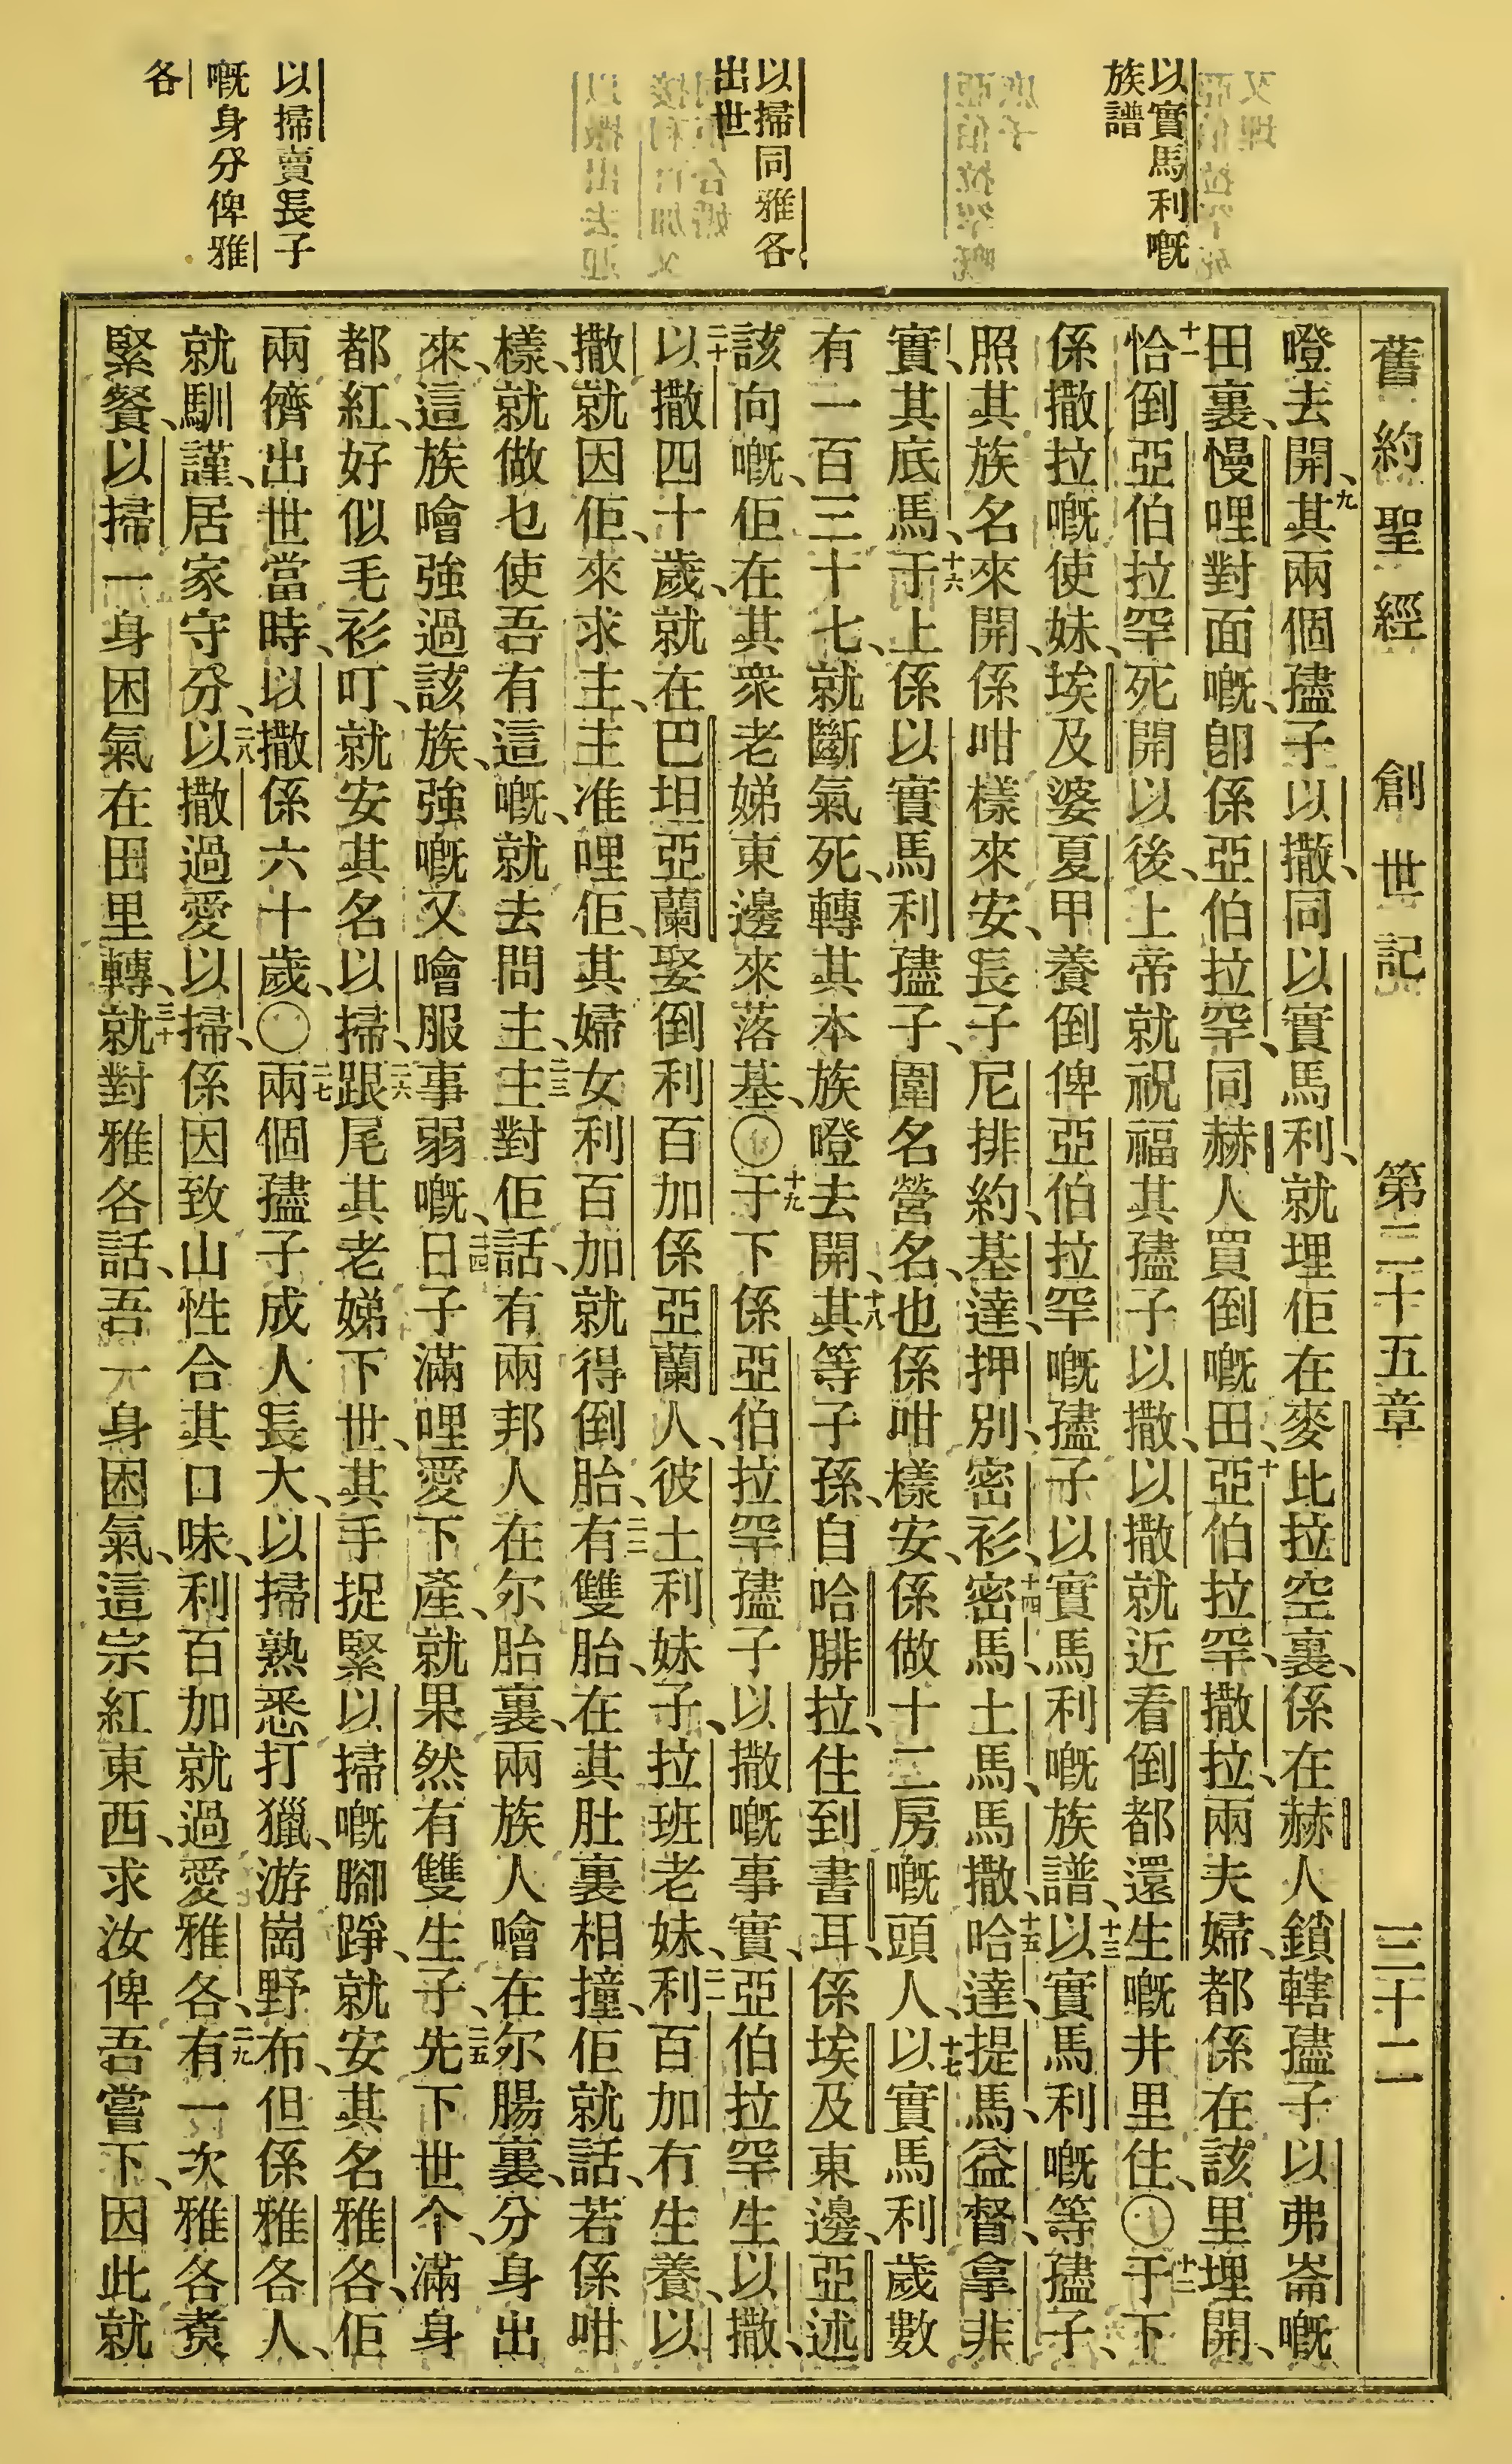 以實馬利嘅
族譜
以掃同雅各
出世
以掃賣長子
嘅身分俾雅
各
舊約聖經 創世記 第二十五章 三十二
噔去開、九其兩個孻子以撒、同以實馬利、就埋佢在麥比拉空裏、係在赫人鎖轄孻子以弗崙嘅
田裏、慢哩對面嘅、卽係亞伯拉罕、同赫人買倒嘅田、十亞伯拉罕、撒拉、兩夫婦、都係在該里埋開、
十一恰倒亞伯拉罕死開以後、上帝就祝福其孻子以撒、以撒就近看倒都還生嘅井里住、〇十二于下
係撒拉嘅使妹、埃及婆夏甲養倒俾亞伯拉罕嘅孻子以實馬利嘅族譜、十三以實馬利嘅等孻子、
照其族名來開、係咁樣來安、長子尼排約、基達、押別、密衫、十四密馬、土馬、馬撒、十五哈達、提馬、益督、拿非
實、其底馬、十六于上係以實馬利孻子、圍名營名、也係咁樣安、係做十二房嘅頭人、十七以實馬利歲數
有一百三十七、就斷氣死、轉其本族噔去開、十八其等子孫、自哈腓拉、住到書耳、係埃及東邊、亞述
該向嘅、佢在其衆老娣東邊來落基、〇十九于下係亞伯拉罕孻子以撒嘅事實、亞伯拉罕生以撒、
二十以撒四十歲、就在巴坦亞蘭娶倒利百加係亞蘭人、彼土利妹子、拉班老妹、二一利百加冇生養、以
撒就因佢、來求主、主准哩佢、其婦女利百加就得倒胎、二二有雙胎、在其肚裏相撞、佢就話、若係咁
樣、就做乜使吾有這嘅、就去問主、二三主對佢話、有兩邦人在尔胎裏、兩族人噲在尔腸裏、分身出
來、這族噲強過該族、強嘅又噲服事弱嘅、二四日子滿哩愛下產、就果然有雙生子、二五先下世个、滿身
都紅、好似毛衫叮、就安其名以掃、二六跟尾其老娣下世、其手捉緊以掃嘅腳踭、就安其名雅各、佢
兩儕出世當時、以撒係六十歲、〇二七兩個孻子成人長大、以掃熟悉打獵、游崗野布、但係雅各人、
就馴謹、居家守分、二八以撒過愛以掃、係因致山性合其口味、利百加就過愛雅各、二九有一次雅各煑
緊餐、以掃一身困氣在田里轉、三十就對雅各話、吾一身困氣、這宗紅東西、求汝俾吾嘗下、因此就